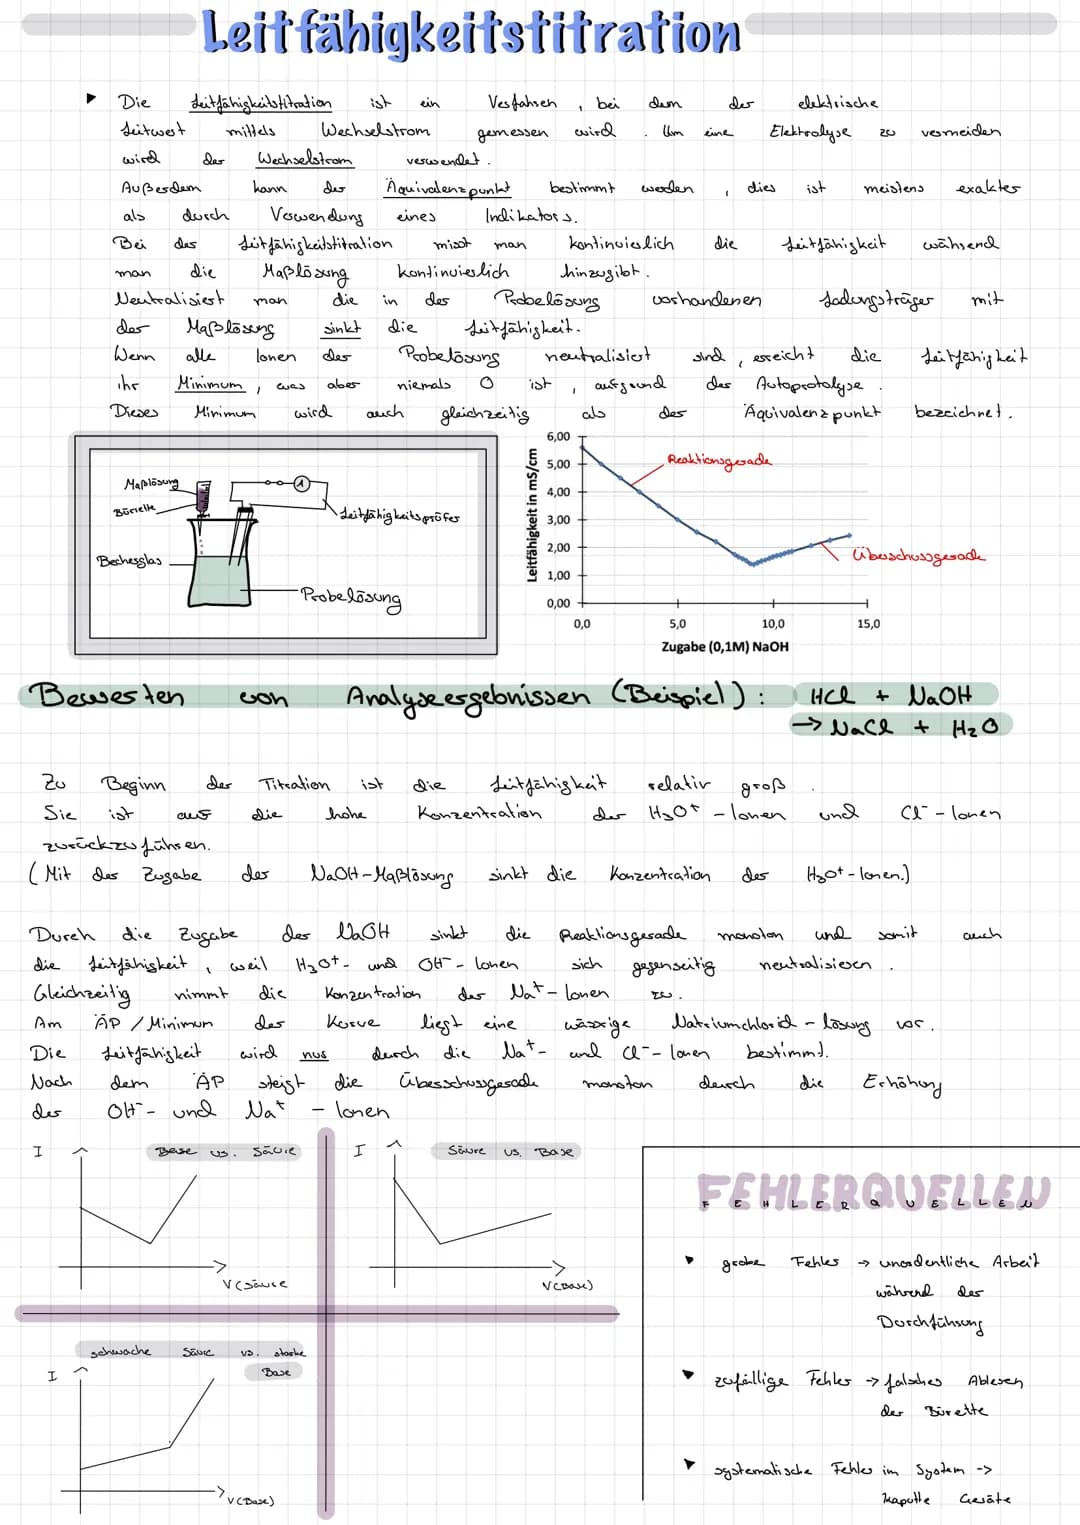 Leitfähigkeitstitration
▶ Die Leitfähigkeitstitration ist ein Verfahren, bei dem der elektrische
Leitwert mittels Wechselstrom gemessen wird. Um eine Elektrolyse zu vermeiden
wird der Wechselstrom verwendet.
Außerdem kann der Äquivalenzpunkt bestimmt werden, dies ist meistens exakter
als durch Verwendung eines Indikators.
Bei der Leitfähigkeitstitration misst man kontinuierlich die Leitfähigkeit während
man die Maßlösung kontinuierlich hinzugibt.
Neutralisiert man die in der Probelösung vorhandenen Ladungsträger mit
der Maßlösung sinkt die Leitfähigkeit.
Wenn alle Ionen der Probelösung neutralisiert sind, erreicht die Leitfähigkeit
ihr Minimum, was aber niemals 0 ist, aufgrund der Autoprotolyse.
Dieses Minimum wird auch gleichzeitig als der Äquivalenzpunkt bezeichnet.
Maßlösung
Bürette
Becherglas
A
Leitfähigkeitsprüfer
Probelösung
Leitfähigkeit in mS/cm
6,00
5,00
4,00
3,00
2,00
1,00
0,00
0,0 5,0 10,0 15,0
Zugabe (0,1M) NaOH
Reaktionsgerade
Überschussgerade
Bewerten von Analyseergebnissen (Beispiel): HCl + NaOH
→ NaCl + H₂O
Zu Beginn der Titration ist die Leitfähigkeit relativ groß.
Sie ist auf die hohe Konzentration der H₃O⁺-Ionen und Cl⁻-Ionen
zurückzuführen.
(Mit der Zugabe der NaOH-Maßlösung sinkt die Konzentration der H₃O⁺-Ionen.)
Durch die Zugabe der NaOH sinkt die Reaktionsgerade monoton und somit auch
die Leitfähigkeit, weil H₃O⁺- und OH⁻-Ionen sich gegenseitig neutralisieren.
Gleichzeitig nimmt die Konzentration der Na⁺-Ionen zu.
Am ÄP / Minimum der Kurve liegt eine wässrige Natriumchlorid-lösung vor.
Die Leitfähigkeit wird nur durch die Na⁺- und Cl⁻-Ionen bestimmt.
Nach dem ÄP steigt die Überschussgerade monoton durch die Erhöhung
der OH⁻- und Na⁺-Ionen
I
Base vs. Säure
V(Säure
I
Säure vs. Base
V(Base)
schwache Säure vs. starke
Base
I
V(Base)
FEHLERQUELLEN
FEHLERQUELLEN
▶ grobe Fehler → unordentliche Arbeit
während der
Durchführung
▶ zufällige Fehler → falsches Ablesen
der Bürette
▶ systematische Fehler im System ->
kaputte Geräte